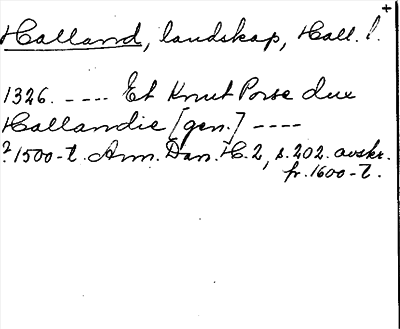 Halland, landskap, Hall. l.
1326. ---- Et Knut Porse dux
Hallandie [gen.] ----
?1500-t. Ann. Dan. H. 2, s. 202. avskr.
fr. 1600-t.